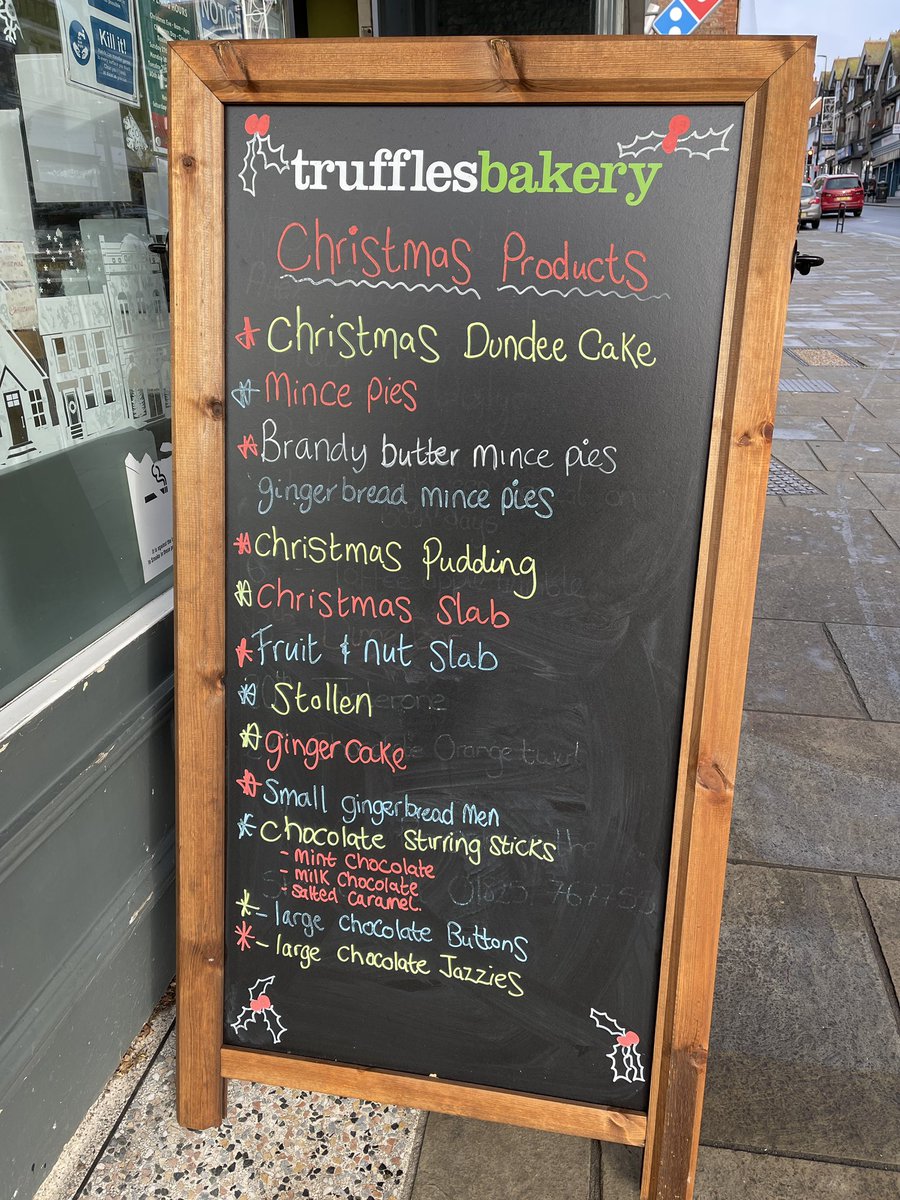 Kill it!
trufflesbakery
Christmas Products
* Christmas Dundee Cake
* Mince pies
* Brandy butter mince pies
gingerbread mince pies
* Christmas Pudding
* Christmas Slab
* Fruit & nut Slab
* Stollen
* ginger cake
* Small gingerbread Men
* Chocolate Stirring Sticks
- mint Chocolate
- milk Chocolate
- Salted Caramel.
* - large chocolate Buttons
* - large chocolate Jazzies